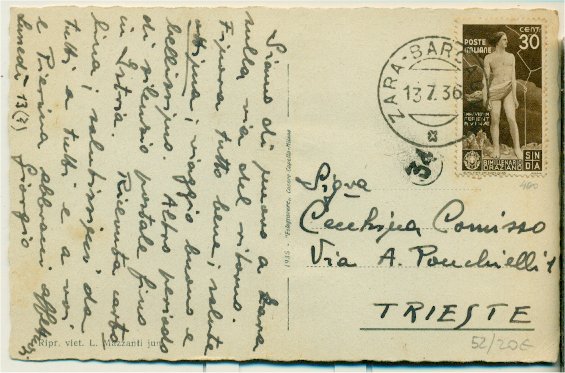 Siamo di nuovo a Zara
sulla via del ritorno.
Finora tutto bene, salute
ottima, viaggio buono e
bellissimo. Altro periodo
di silenzio postale fino
in Istria. Ricevuta carto
lina, salutissimi da
tutti a tutti e a voi
e Pierina abbracci affett.
Lunedì 13 (?) Giorgio
Ripr. viet. L. Mazzanti jun.
1935 - Fotogravure, Cesare Capello-Milano
ZARA-BARC
13.7.36
34
CENT. 30
POSTE ITALIANE
BIMILLENARIO ORAZIANO
Sigra
Cecchina Comisso
Via A. Ponchielli 1
TRIESTE
400
52/20€